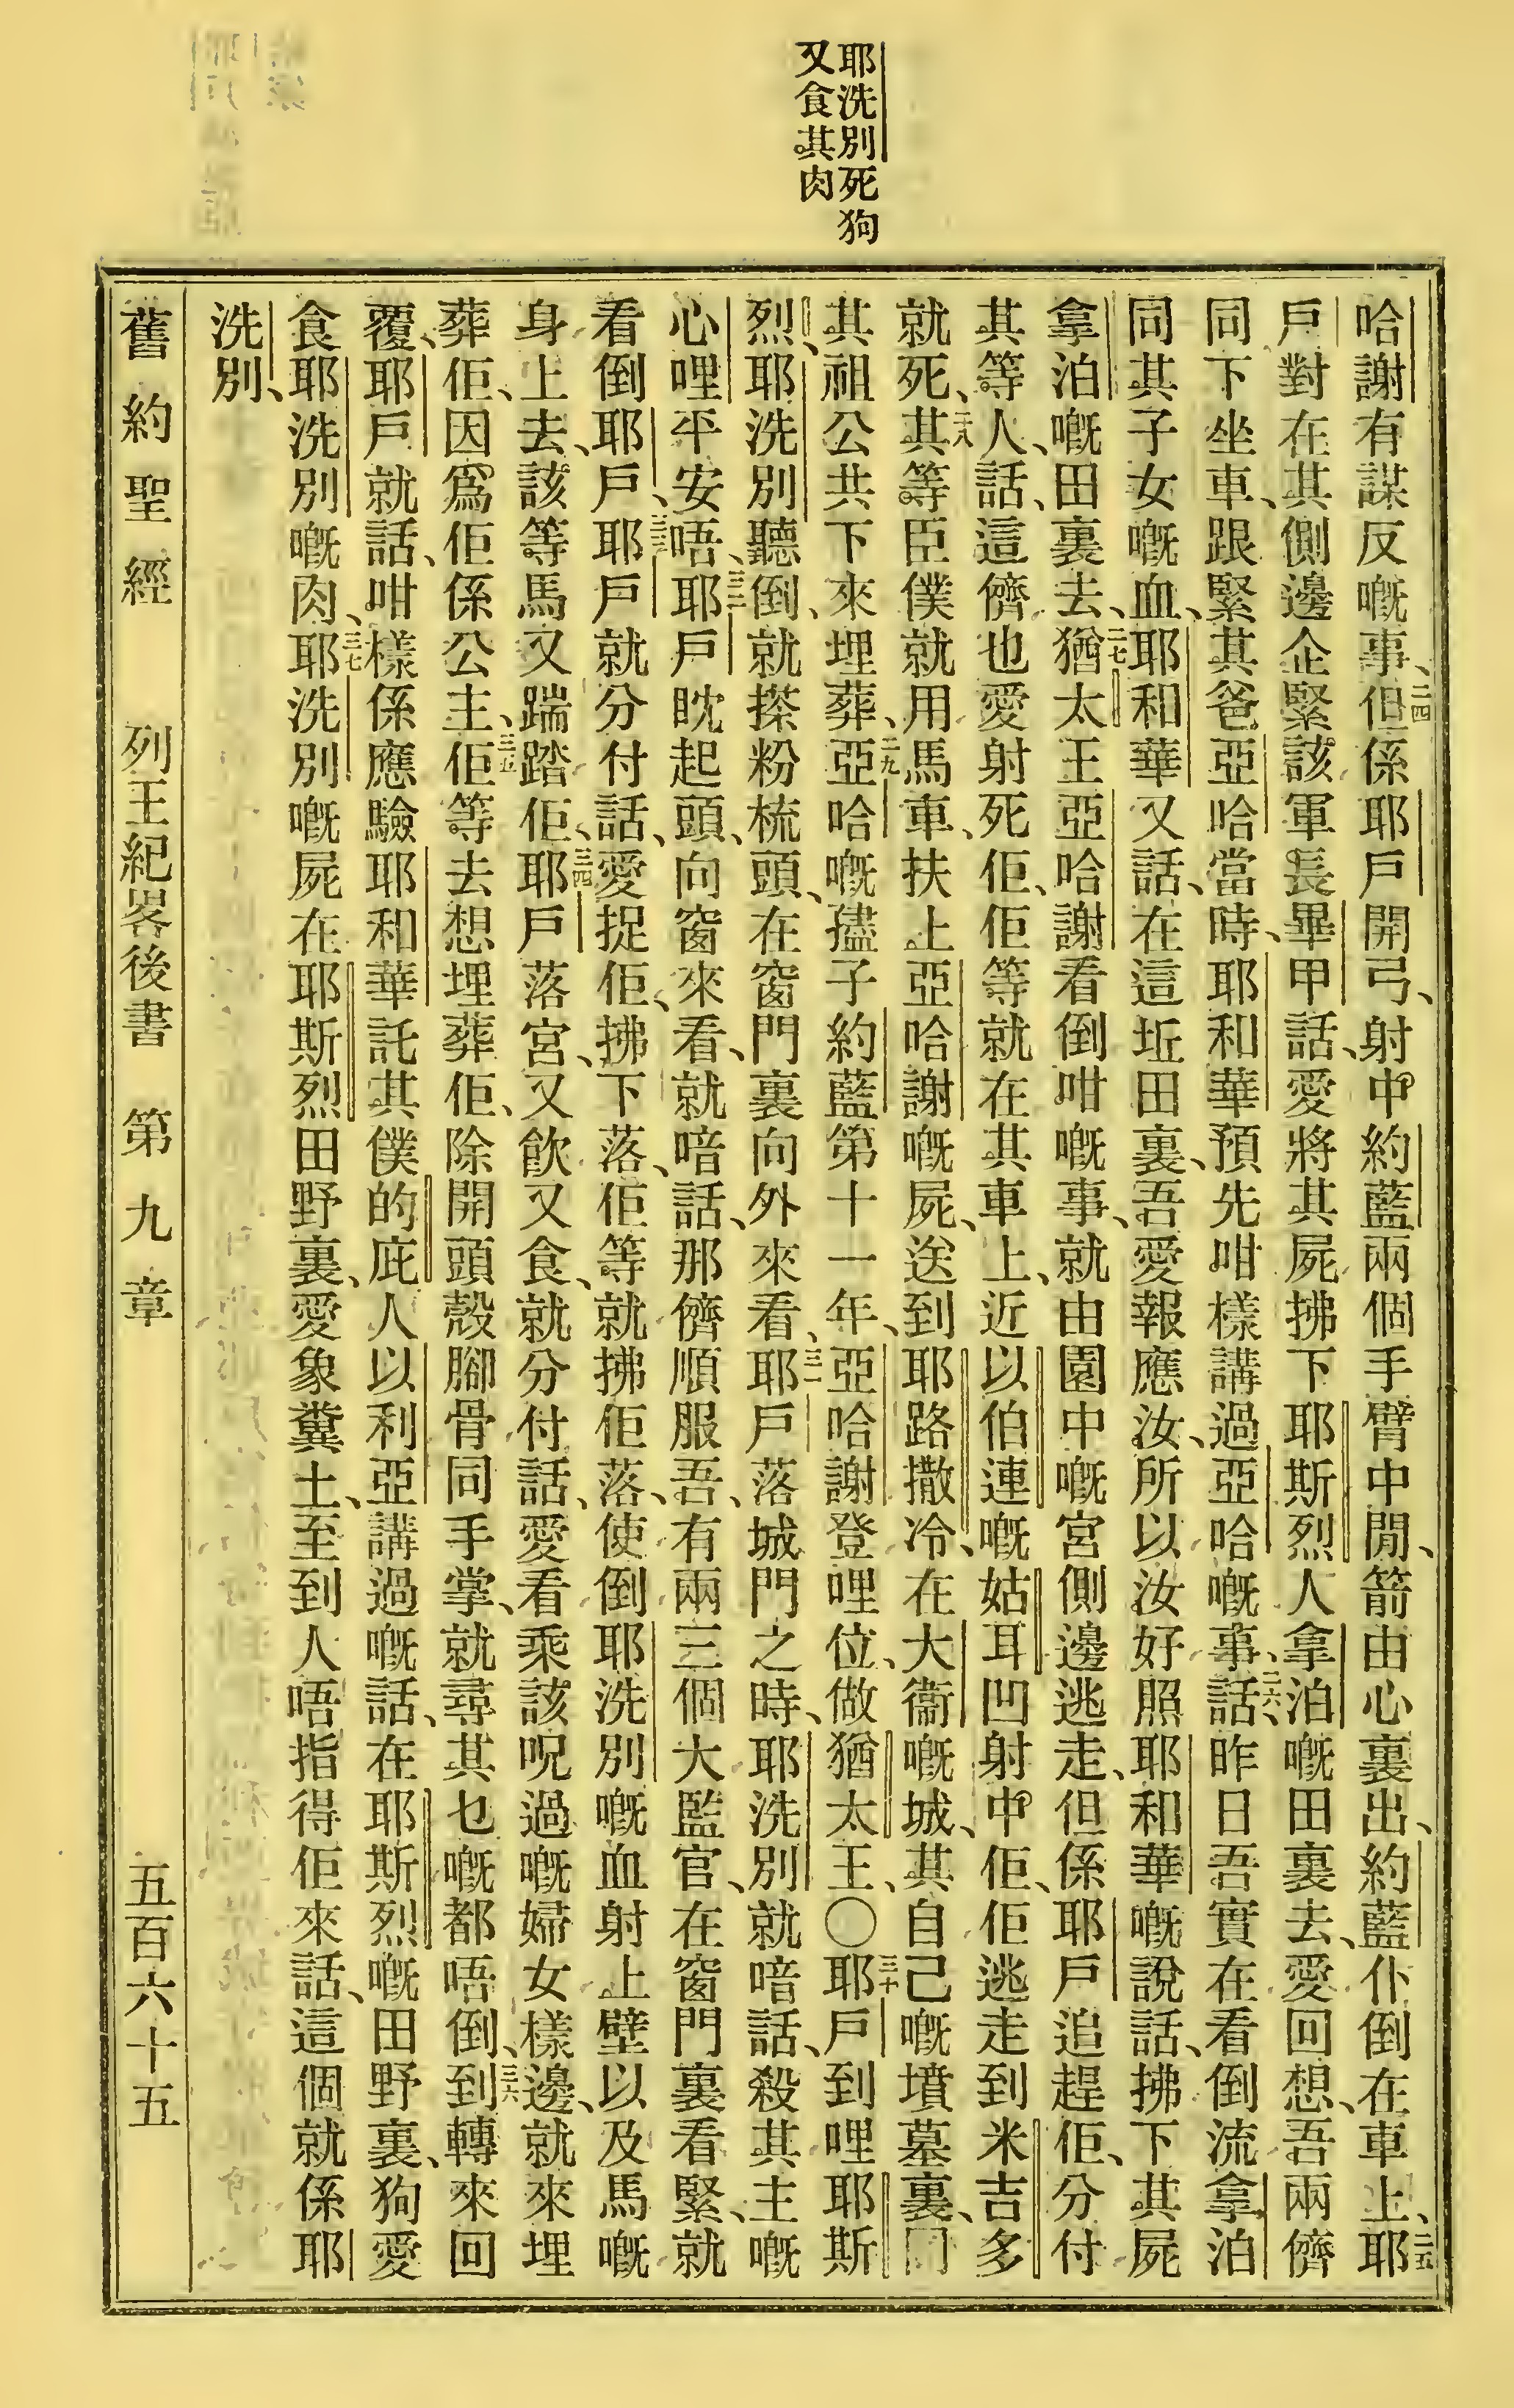 耶洗別死狗
又食其肉
哈謝有謀反嘅事、二四但係耶戶開弓、射中約藍兩個手臂中間、箭由心裏出、約藍仆倒在車上、二五耶
戶對在其側邊企緊該軍長畢甲話、愛將其屍拂下耶斯烈人拿泊嘅田裏去、愛回想、吾兩儕
同下坐車、跟緊其爸亞哈當時、耶和華預先咁樣講過亞哈嘅事、二六話、昨日吾實在看倒流拿泊
同其子女嘅血、耶和華又話、在這坵田裏、吾愛報應汝、所以汝好照耶和華嘅說話、拂下其屍
拿泊嘅田裏去、二七猶太王亞哈謝看倒咁嘅事、就由園中嘅宮側邊逃走、但係耶戶追趕佢、分付
其等人、話、這儕也愛射死佢、佢等就在其車上、近以伯連嘅姑耳凹射中佢、佢逃走到米吉多
就死、二八其等臣僕就用馬車、扶上亞哈謝嘅屍、送到耶路撒冷、在大衞嘅城、其自己嘅墳墓裏、同
其祖公共下來埋葬、二九亞哈嘅孻子約藍第十一年、亞哈謝登哩位、做猶太王、〇三十耶戶到哩耶斯
烈、耶洗別聽倒、就搽粉梳頭、在窗門裏向外來看、三一耶戶落城門之時、耶洗別就喑話、殺其主嘅
心哩平安唔、三二耶戶眈起頭、向窗來看、就喑話、那儕順服吾、有兩三個大監官、在窗門裏看緊、就
看倒耶戶、三三耶戶就分付話、愛捉佢、拂下落、佢等就拂佢落、使倒耶洗別嘅血射上壁以及馬嘅
身上去、該等馬又踹踏佢、三四耶戶落宮、又飲又食、就分付話、愛看乘該呪過嘅婦女樣邊、就來埋
葬佢、因爲佢係公主、三五佢等去想埋葬佢、除開頭殼腳骨同手掌、就尋其乜嘅都唔倒、三六到轉來回
覆、耶戶就話、咁樣係應驗耶和華託其僕的庇人以利亞講過嘅話、在耶斯烈嘅田野裏、狗愛
食耶洗別嘅肉、三七耶洗別嘅屍在耶斯烈田野裏、愛象糞土、至到人唔指得佢來話、這個就係耶
洗別、
舊約聖經　列王紀畧後書　第九章　五百六十五